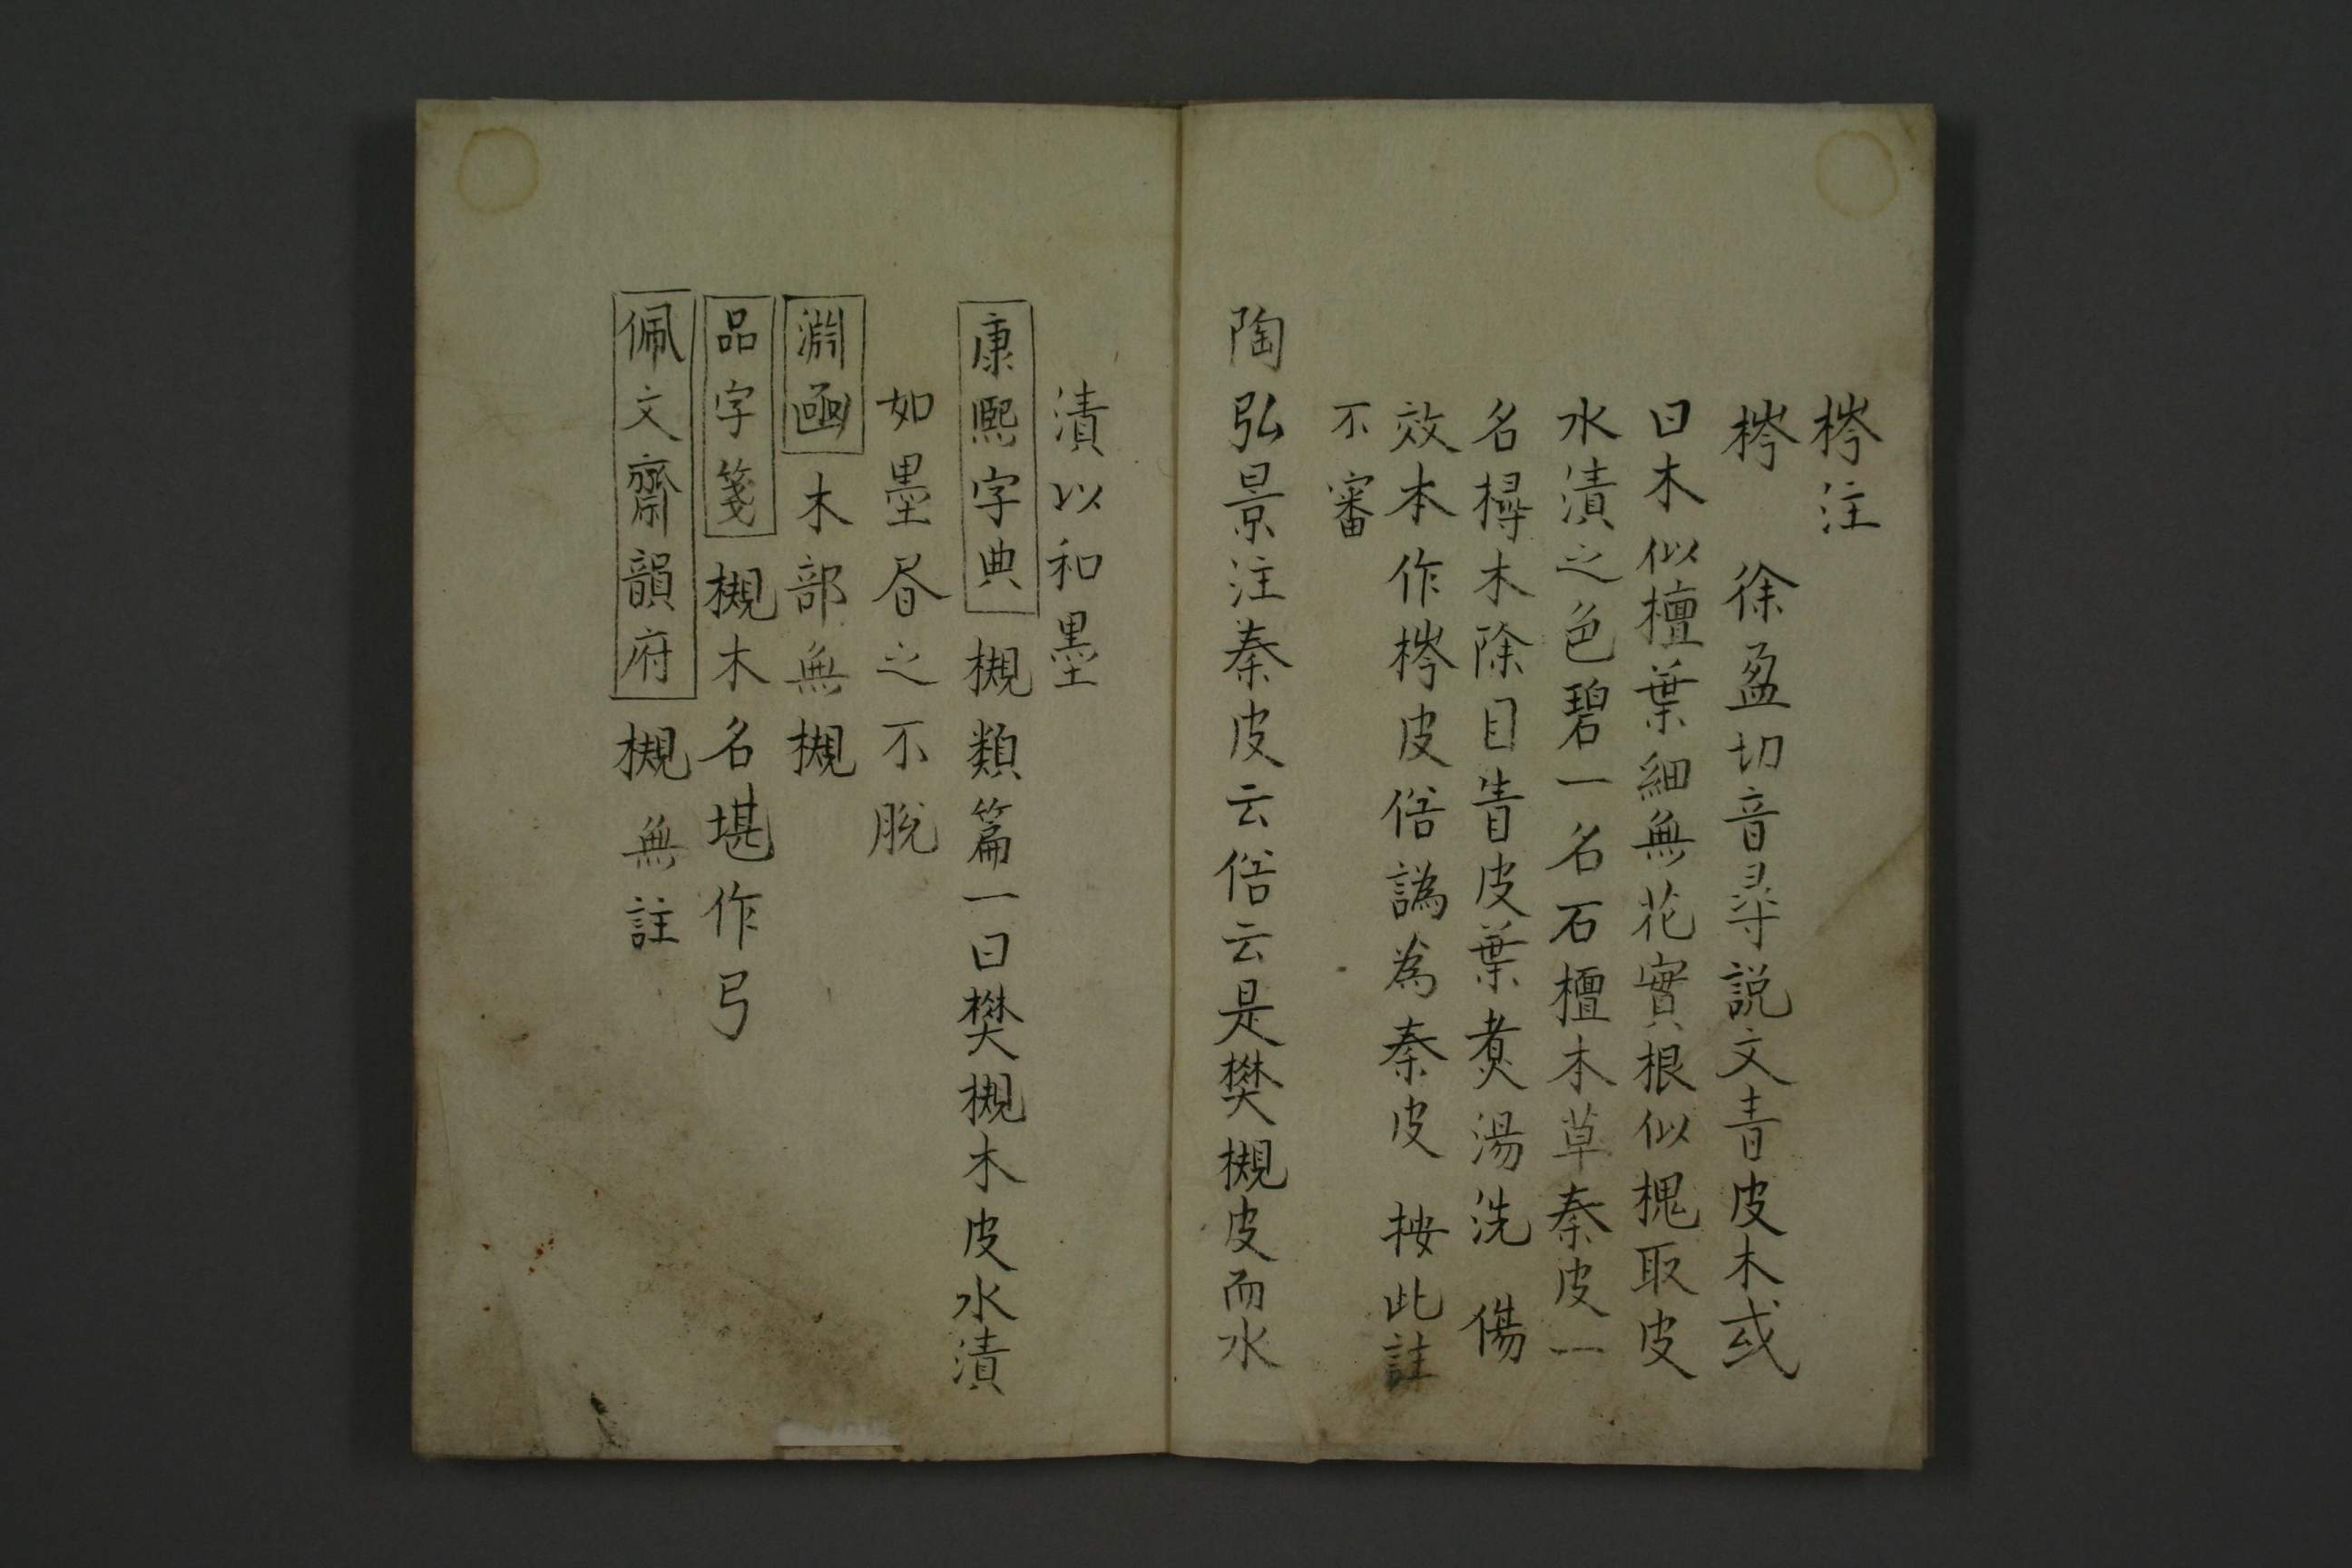 梣注
梣　徐盈切音尋説文青皮木或
曰木似檀葉細無花實根似槐取皮
水漬之色碧一名石檀本草秦皮一
名樳木除目眚皮葉煑湯洗　傷
效本作梣皮俗譌為秦皮　按此註
不審
陶弘景注秦皮云俗云是樊槻皮而水
漬以和墨
康熙字典　槻類篇一曰樊槻木皮水漬
如墨昬之不脫
淵𠁥　木部無槻
品字箋　槻木名堪作弓
佩文齋韻府　槻　無註